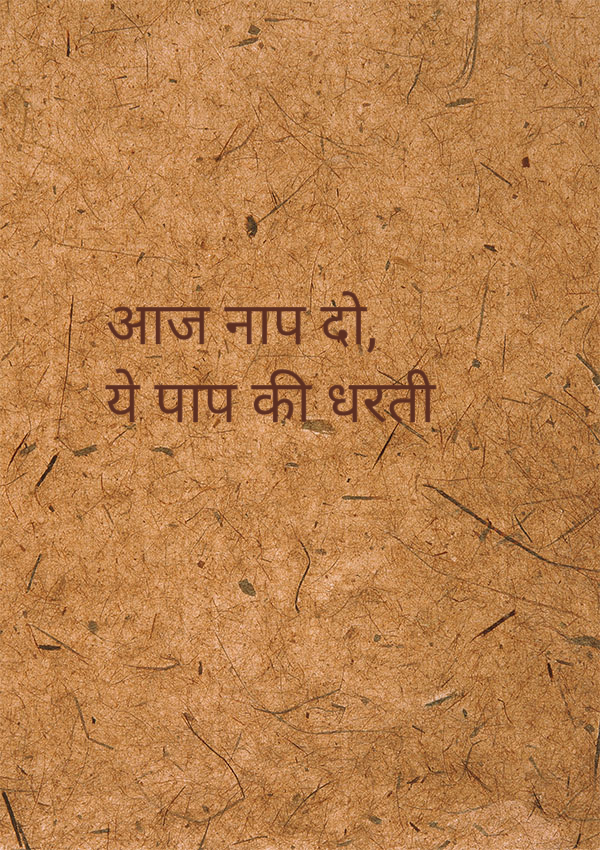 आज नाप दो,
ये पाप की धरती